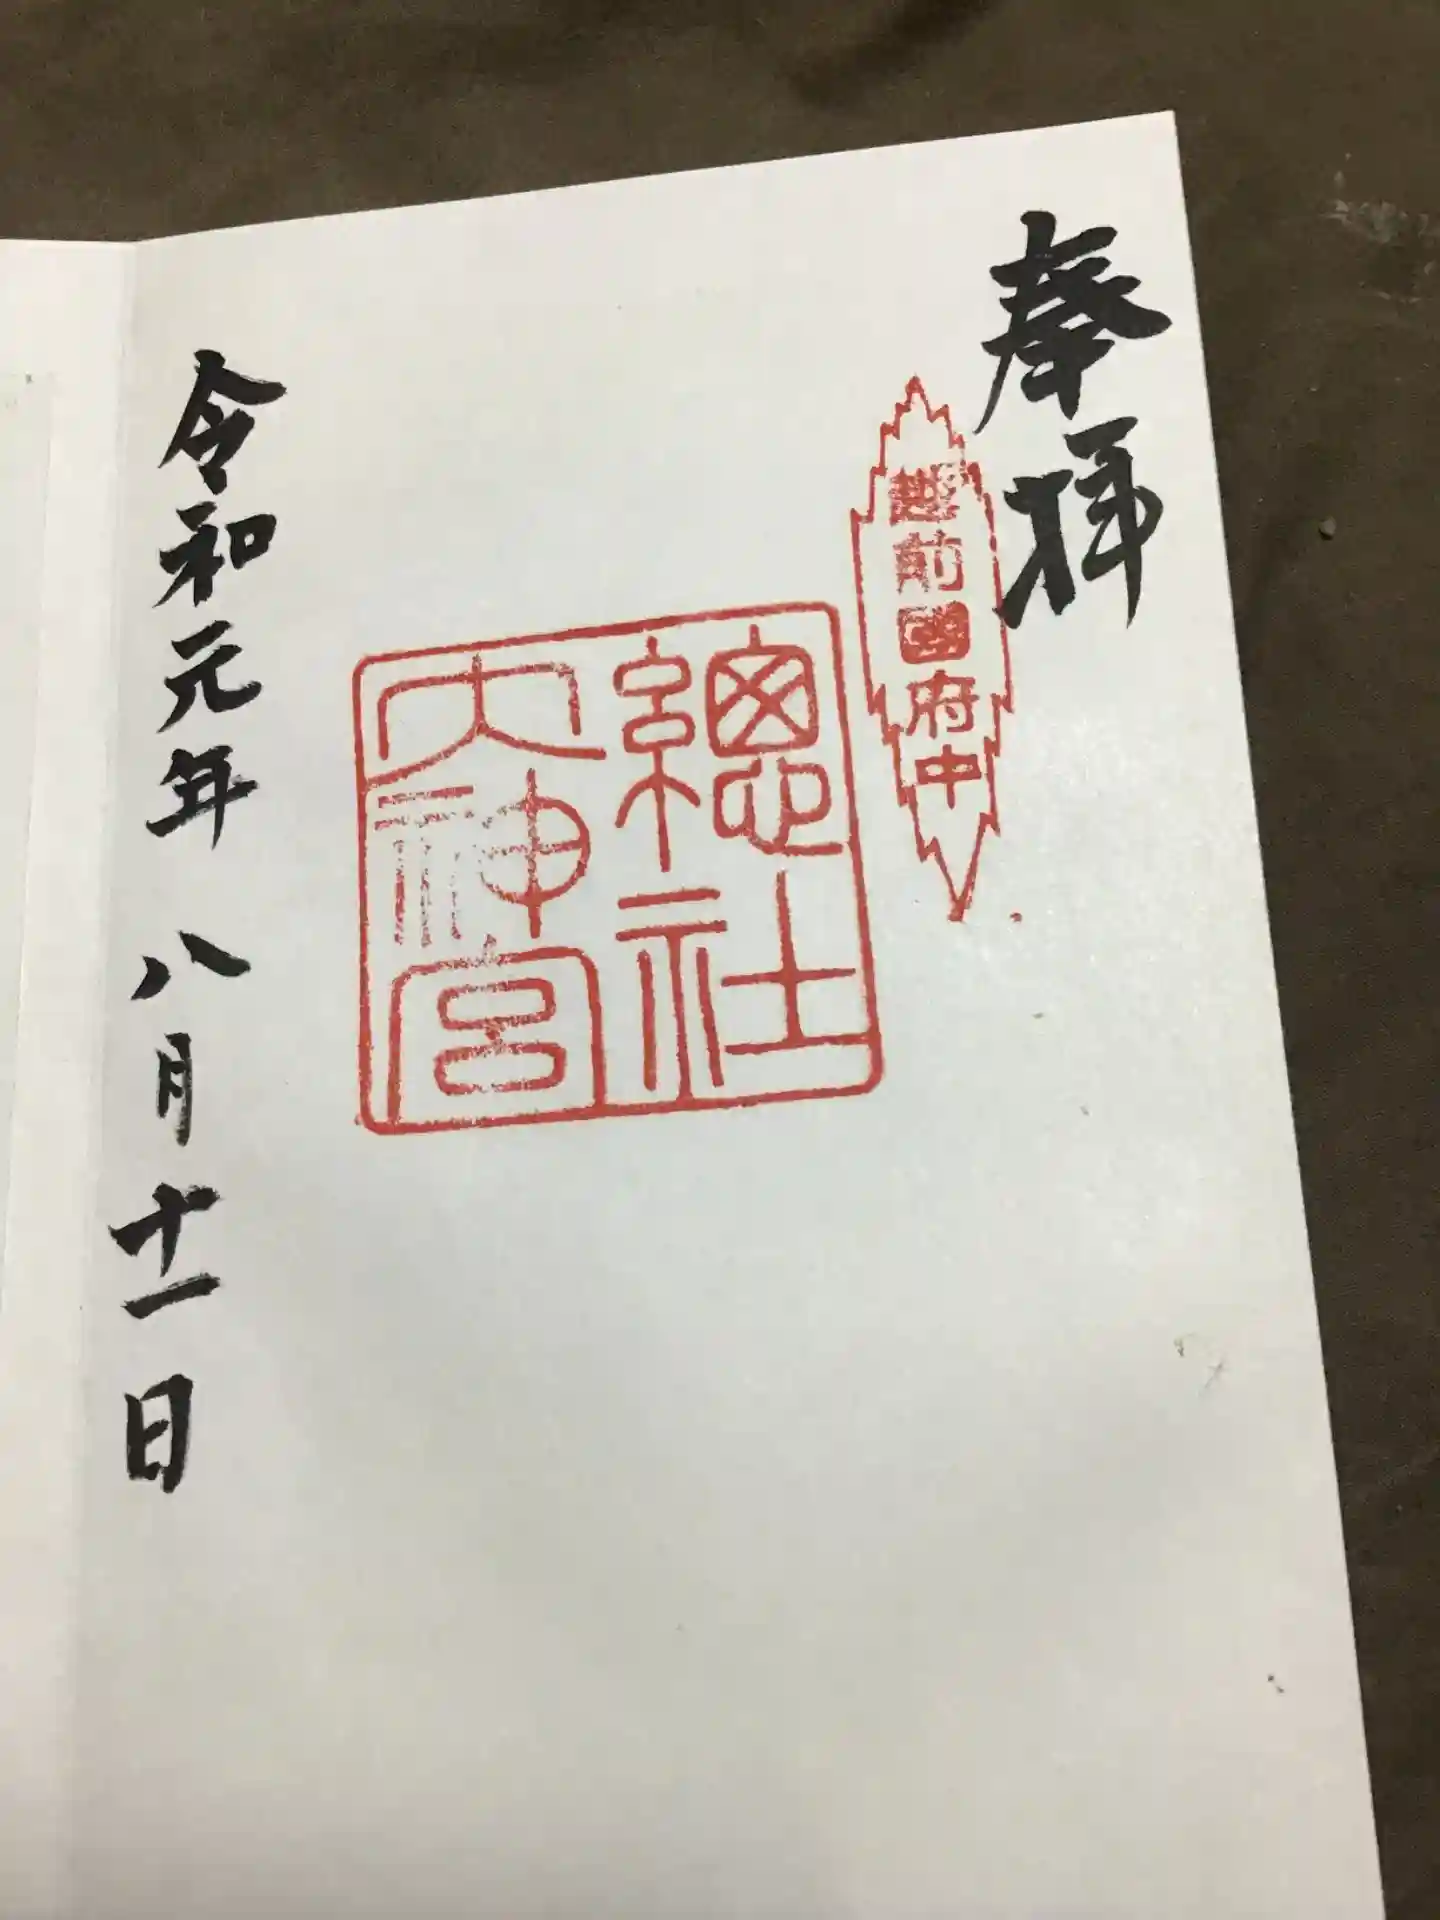 奉拝
越前國府中
總社
大神宮
令和元年 八月十一日